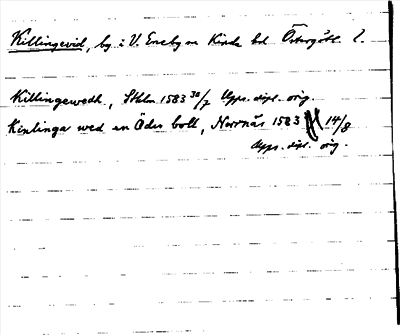 Killingevid, by i V. Eneby sn Kinda hd Östergötl. l.
Killingewedh, Sthlm 1583 30/7 Upps. dipl. orig.
Kinlinga wed en Öder bolt, Norrnäs 1583 14/8
Upps. dipl. orig.